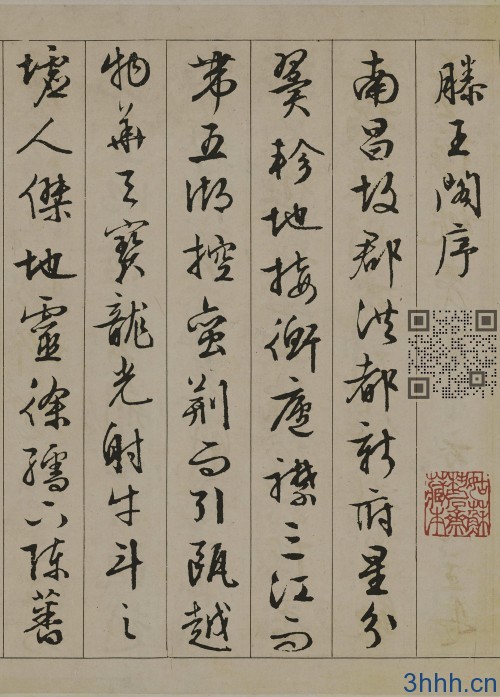 滕王閣序
南昌故郡洪都新府星分
翼軫地接衡廬襟三江而
帶五湖控蠻荊而引甌越
物華天寶龍光射牛斗之
墟人傑地靈徐孺下陳蕃
3hhh.cn